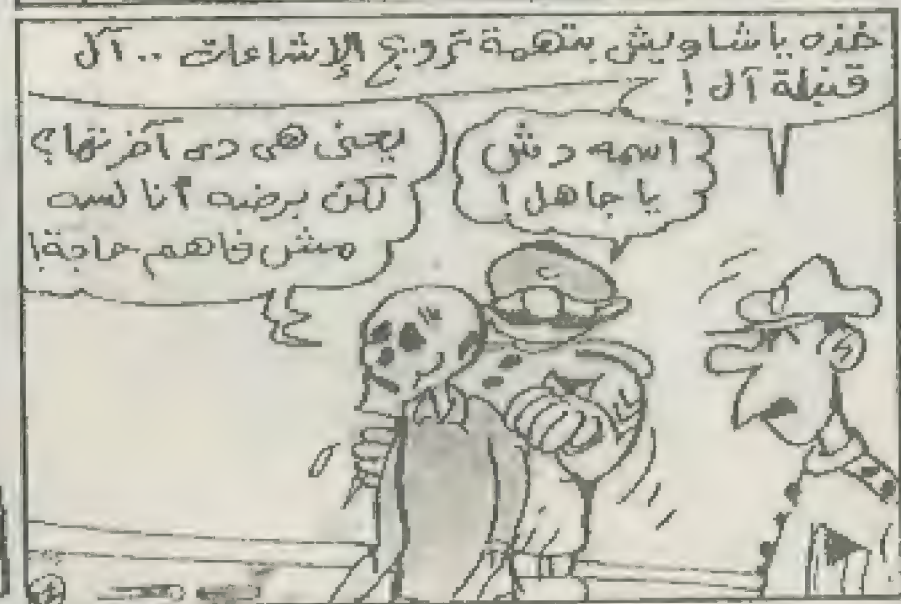 خذه يا شاويش بتهمة ترويج الإشاعات .. آل
قنبلة آل !
اسمه دش
يا جاهل !
يعنى هى دى آخرتها ؟
لكن برضه أنا لسه
مش فاهم حاجة !